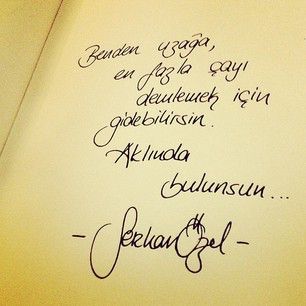 Benden uzağa,
en fazla çayı
demlemek için
gidebilirsin.
Aklında
bulunsun...
- Serkan Özel -